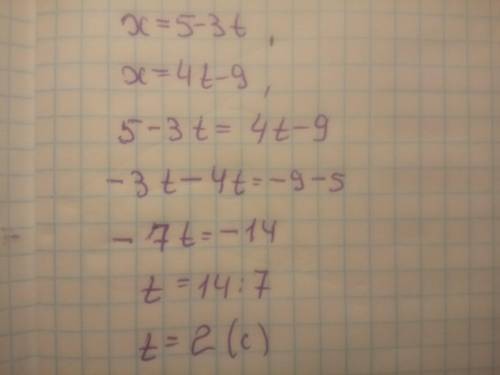 x=5-3t,
x=4t-9,
5-3t=4t-9
-3t-4t=-9-5
-7t=-14
t=14:7
t=2(c)